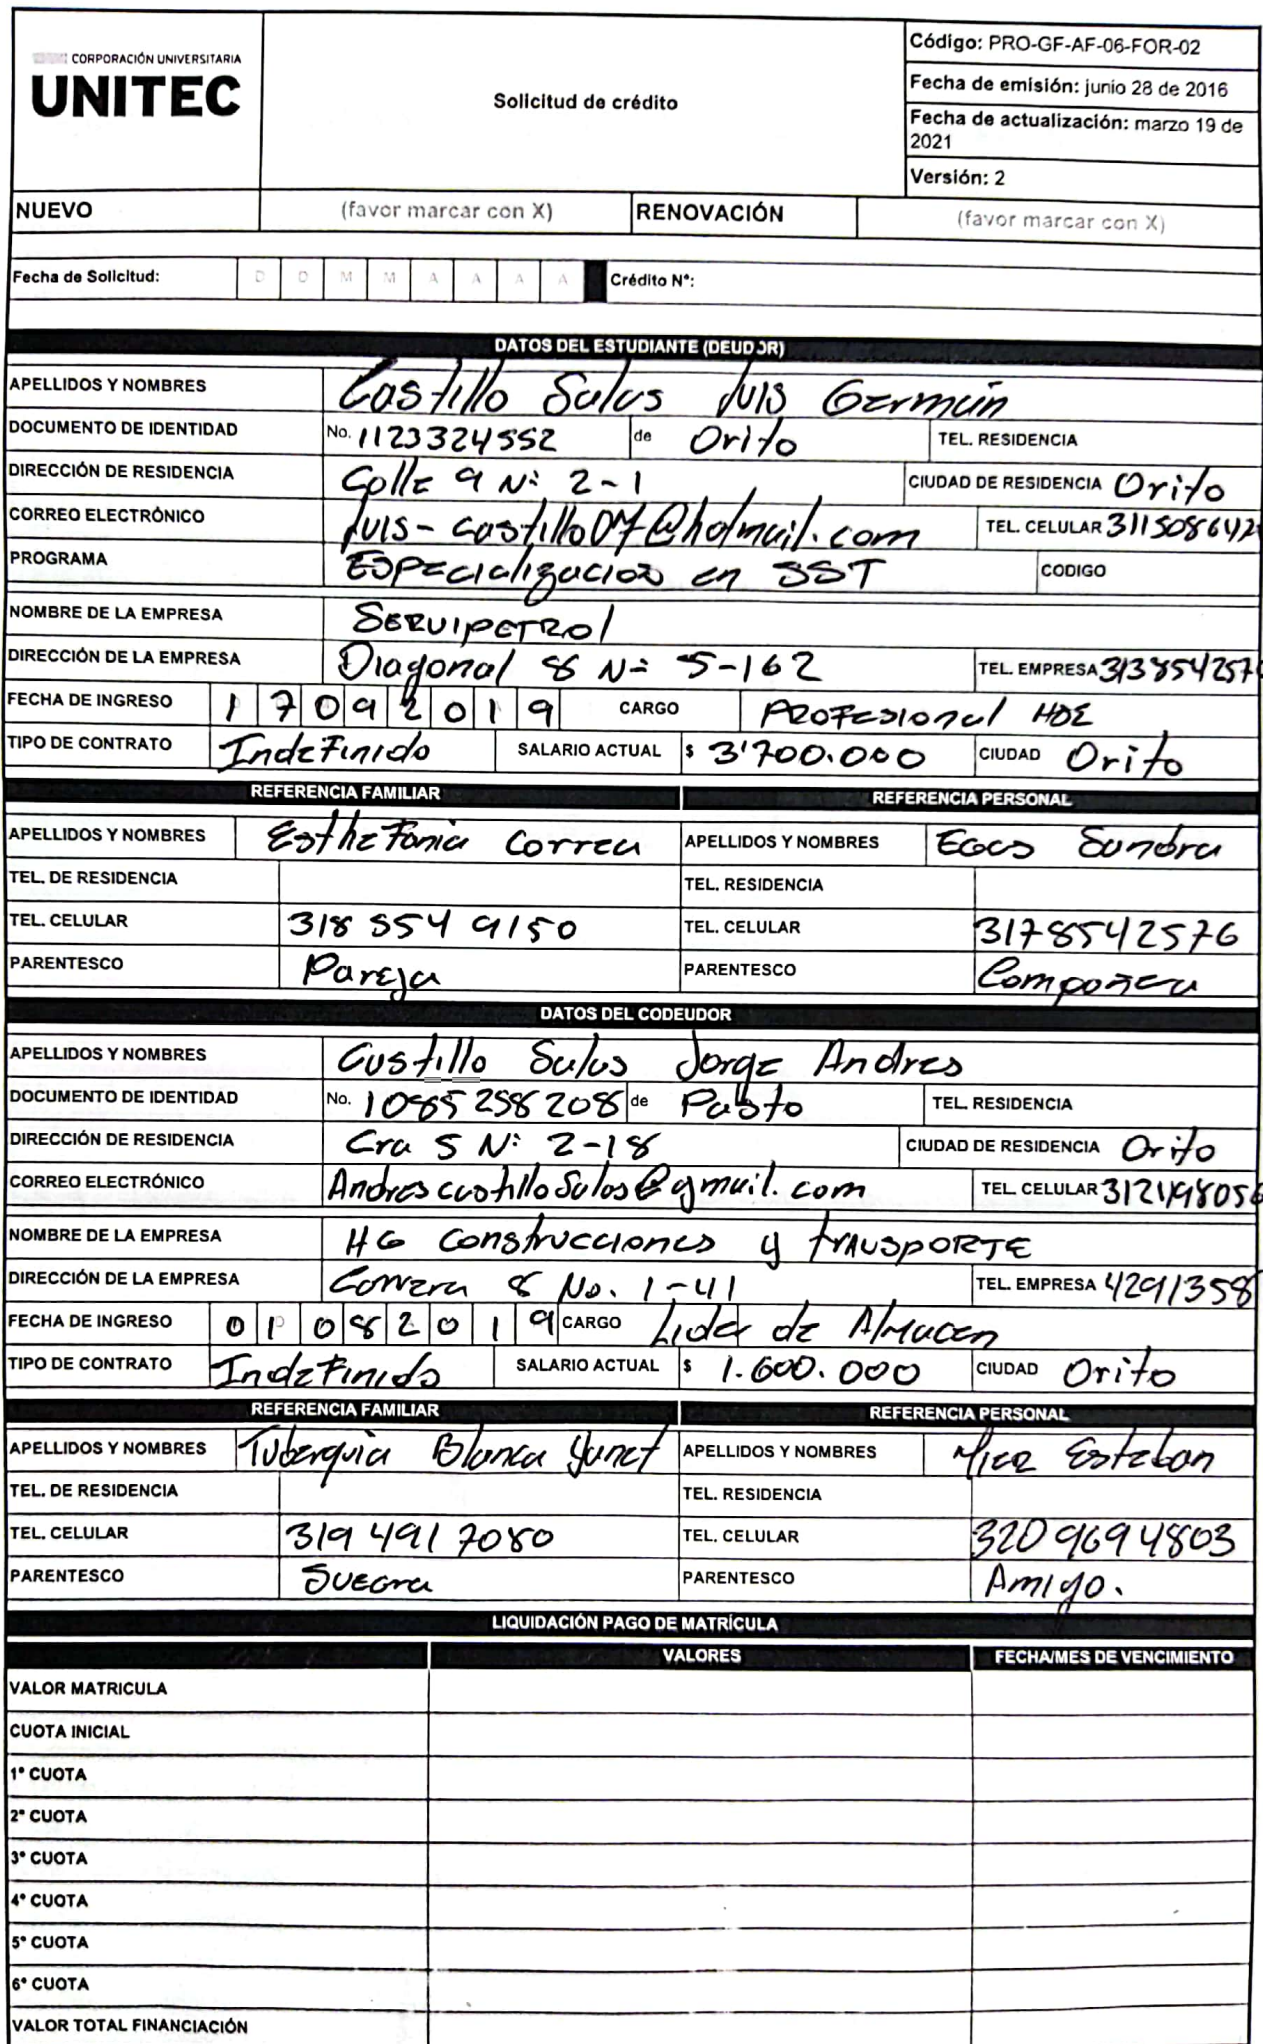 CORPORACIÓN UNIVERSITARIA
UNITEC
Solicitud de crédito
Código: PRO-GF-AF-06-FOR-02
Fecha de emisión: junio 28 de 2016
Fecha de actualización: marzo 19 de 2021
Versión: 2
NUEVO (favor marcar con X) RENOVACIÓN (favor marcar con X)
Fecha de Solicitud: D D M M A A A A Crédito N°:
DATOS DEL ESTUDIANTE (DEUDOR)
APELLIDOS Y NOMBRES Castillo Salas Luis Germán
DOCUMENTO DE IDENTIDAD No. 1123324552 de Orito TEL. RESIDENCIA
DIRECCIÓN DE RESIDENCIA Calle 9 N: 2-1 CIUDAD DE RESIDENCIA Orito
CORREO ELECTRÓNICO luis-castillo07@hotmail.com TEL. CELULAR 311508642
PROGRAMA Especialización en SST CODIGO
NOMBRE DE LA EMPRESA SERVIPETROL
DIRECCIÓN DE LA EMPRESA Diagonal 8 N= 5-162 TEL. EMPRESA 313854257
FECHA DE INGRESO 1 7 0 9 2 0 1 9 CARGO Profesional HDE
TIPO DE CONTRATO Indefinido SALARIO ACTUAL $ 3'700.000 CIUDAD Orito
REFERENCIA FAMILIAR REFERENCIA PERSONAL
APELLIDOS Y NOMBRES Esthefania Correa APELLIDOS Y NOMBRES Egas Sandra
TEL. DE RESIDENCIA TEL. RESIDENCIA
TEL. CELULAR 318 554 9150 TEL. CELULAR 3178542576
PARENTESCO Pareja PARENTESCO Compañera
DATOS DEL CODEUDOR
APELLIDOS Y NOMBRES Castillo Salas Jorge Andres
DOCUMENTO DE IDENTIDAD No. 1085258208 de Pasto TEL. RESIDENCIA
DIRECCIÓN DE RESIDENCIA Cra 5 N: 2-18 CIUDAD DE RESIDENCIA Orito
CORREO ELECTRÓNICO AndrescastilloSalas@gmail.com TEL. CELULAR
NOMBRE DE LA EMPRESA HG Construcciones y transporte
DIRECCIÓN DE LA EMPRESA Carrera 8 No. 1-41 TEL. EMPRESA 4291358
FECHA DE INGRESO 0 1 0 8 2 0 1 9 CARGO Lider de Almacen
TIPO DE CONTRATO Indefinido SALARIO ACTUAL $ 1.600.000 CIUDAD Orito
REFERENCIA FAMILIAR REFERENCIA PERSONAL
APELLIDOS Y NOMBRES Tuberquia Blanca Yanet APELLIDOS Y NOMBRES Esteban
TEL. DE RESIDENCIA TEL. RESIDENCIA
TEL. CELULAR 319 491 7080 TEL. CELULAR 320 9694803
PARENTESCO Suegra PARENTESCO Amigo.
LIQUIDACIÓN PAGO DE MATRÍCULA
VALORES FECHA/MES DE VENCIMIENTO
VALOR MATRICULA
CUOTA INICIAL
1° CUOTA
2° CUOTA
3° CUOTA
4° CUOTA
5° CUOTA
6° CUOTA
VALOR TOTAL FINANCIACIÓN